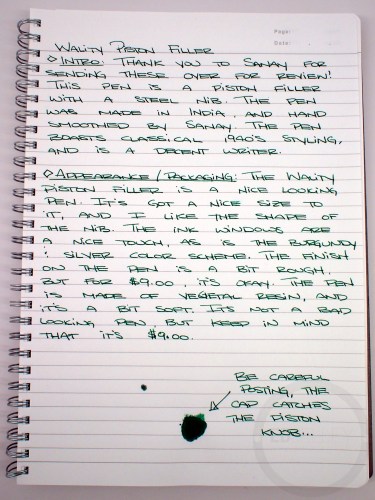 Page:
Date:
Wality Piston Filler
◇ Intro: Thank you to Sanay for
sending these over for review!
This pen is a piston filler
with a steel nib. The pen
was made in India, and hand
smoothed by Sanay. The pen
boasts classical 1940's styling,
and is a decent writer.
◇ Appearance/Packaging: The Wality
Piston Filler is a nice looking
pen. It's got a nice size to
it, and I like the shape of
the nib. The ink windows are
a nice touch, as is the burgundy
: silver color scheme. The finish
on the pen is a bit rough,
but for $9.00, it's okay. The pen
is made of vegetal resin, and
it's a bit soft. It's not a bad
looking pen, but keep in mind
that it's $9.00.
Be careful
posting, the
cap catches
the piston
knob...